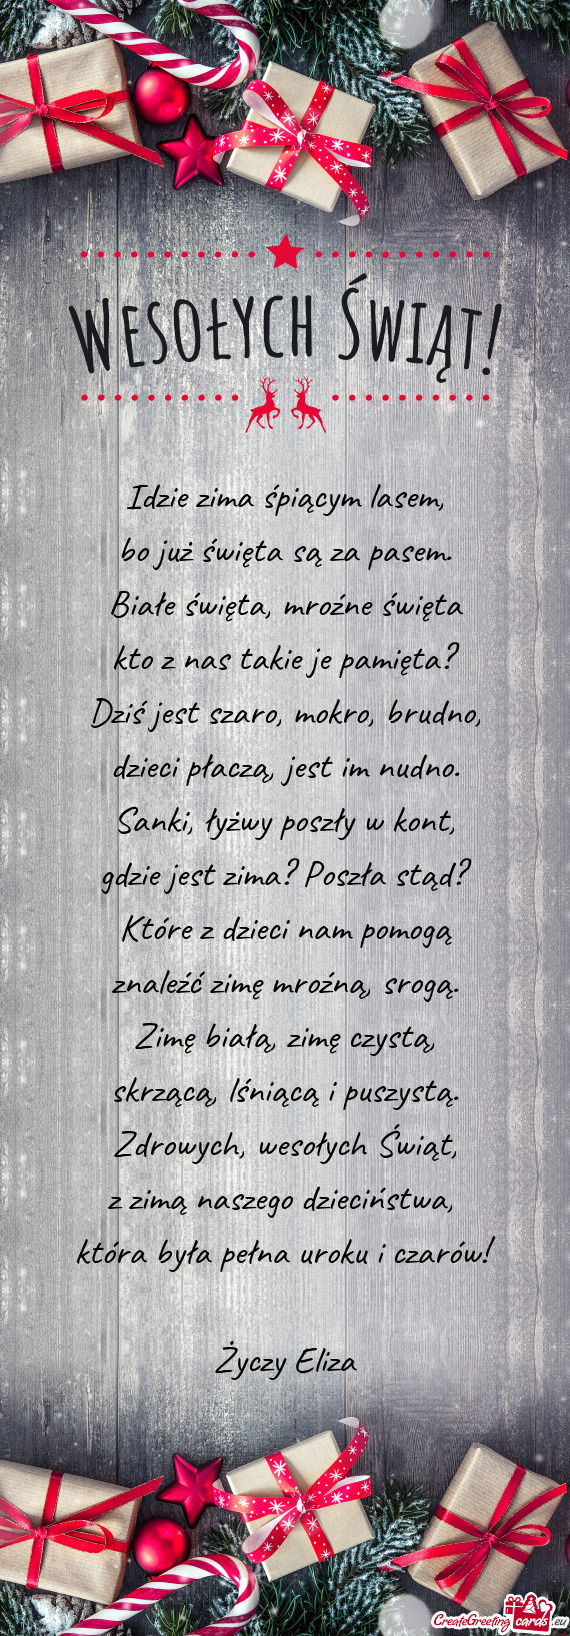 Wesołych Świąt!
Idzie zima śpiącym lasem,
bo już święta są za pasem.
Białe święta, mroźne święta
kto z nas takie je pamięta?
Dziś jest szaro, mokro, brudno,
dzieci płaczą, jest im nudno.
Sanki, łyżwy poszły w kont,
gdzie jest zima? Poszła stąd?
Które z dzieci nam pomogą
znaleźć zimę mroźną, srogą.
Zimę białą, zimę czystą,
skrzącą, lśniącą i puszystą.
Zdrowych, wesołych Świąt,
z zimą naszego dzieciństwa,
która była pełna uroku i czarów!
Życzy Eliza
CreateGreeting cards.eu